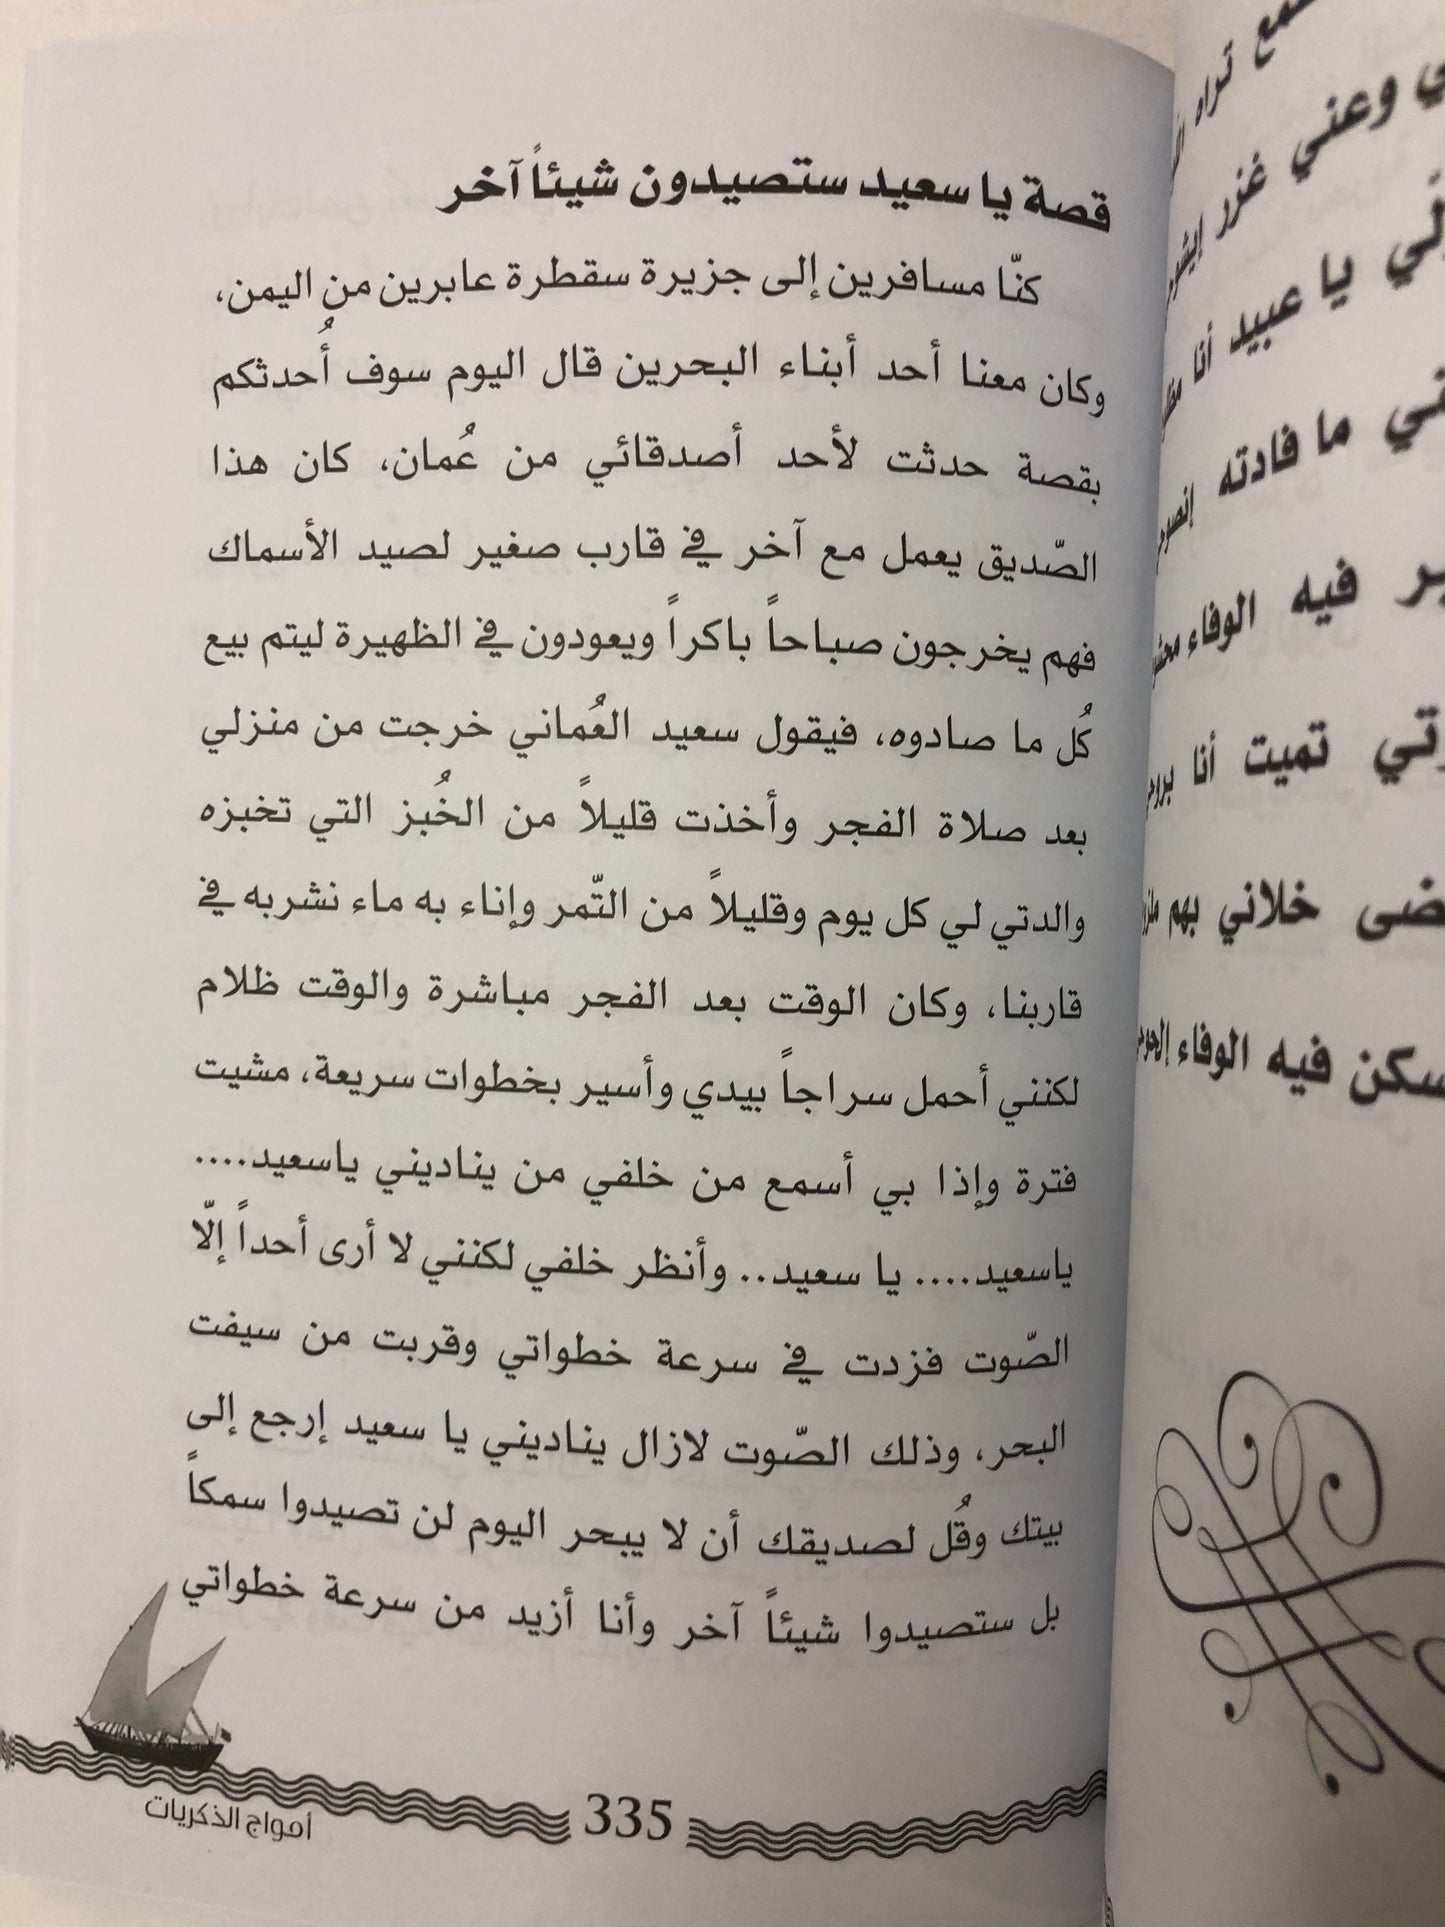 قصة يا سعيد ستصيدون شيئاً آخر
كنّا مسافرين إلى جزيرة سقطرة عابرين من اليمن،
وكان معنا أحد أبناء البحرين قال اليوم سوف أُحدثكم
بقصة حدثت لأحد أصدقائي من عُمان، كان هذا
الصّديق يعمل مع آخر في قارب صغير لصيد الأسماك
فهم يخرجون صباحاً باكراً ويعودون في الظهيرة ليتم بيع
كُل ما صادوه، فيقول سعيد العُماني خرجت من منزلي
بعد صلاة الفجر وأخذت قليلاً من الخُبز التي تخبزه
والدتي لي كل يوم وقليلاً من التّمر وإناء به ماء نشربه في
قاربنا، وكان الوقت بعد الفجر مباشرة والوقت ظلام
لكنني أحمل سراجاً بيدي وأسير بخطوات سريعة، مشيت
فترة وإذا بي أسمع من خلفي من يناديني ياسعيد....
ياسعيد.... يا سعيد.. وأنظر خلفي لكنني لا أرى أحداً إلّا
الصّوت فزدت في سرعة خطواتي وقربت من سيفت
البحر، وذلك الصّوت لازال يناديني يا سعيد إرجع إلى
بيتك وقُل لصديقك أن لا يبحر اليوم لن تصيدوا سمكاً
بل ستصيدوا شيئاً آخر وأنا أزيد من سرعة خطواتي
335
أمواج الذكريات
تراه
وعني غزر
يا عبيد أنا
ما فادته
فيه الوفاء
تميت أنا
خلاني بهم
فيه الوفاء